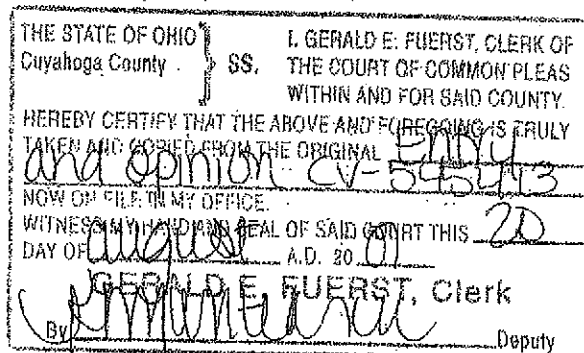 THE STATE OF OHIO } SS. I, GERALD E. FUERST, CLERK OF
Cuyahoga County THE COURT OF COMMON PLEAS
WITHIN AND FOR SAID COUNTY.
HEREBY CERTIFY THAT THE ABOVE AND FOREGOING IS TRULY
TAKEN AND COPIED FROM THE ORIGINAL Entry
and Opinion CV-545443
NOW ON FILE IN MY OFFICE.
WITNESS MY HAND AND SEAL OF SAID COURT THIS 20
DAY OF August A.D. 20 07
GERALD E. FUERST, Clerk
By Deputy